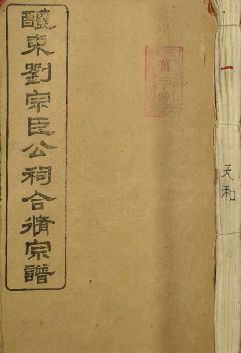 醴東劉宗臣公祠合脩宗譜
一
天和